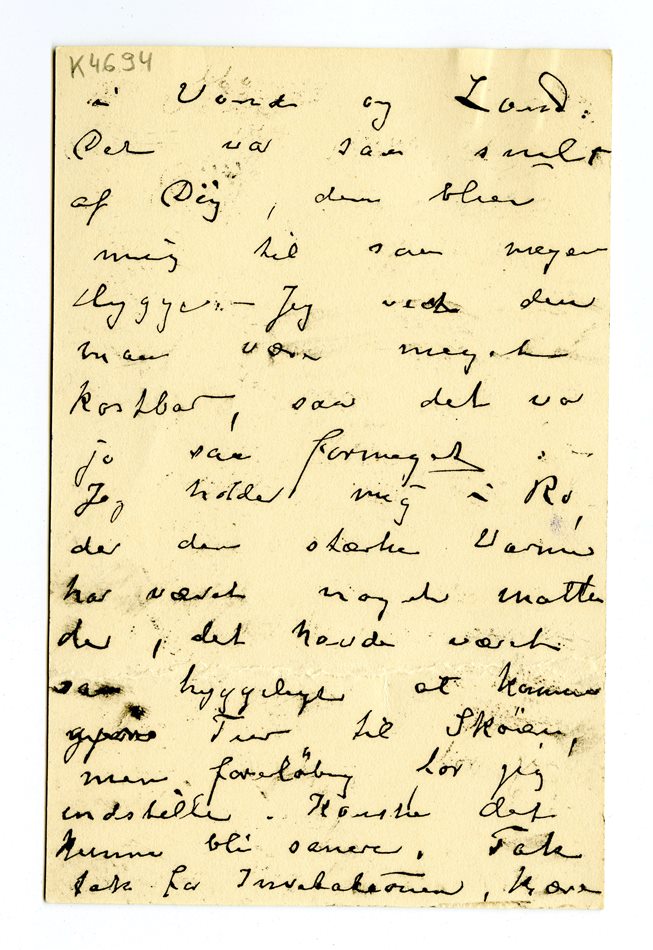 K4694
i Vand og Land:
Det var saa snilt
af Dig, den blev
mig til saa megen
Hygge. – Jeg ved den
maa være meget
kostbar, saa det var
jo saa formeget : –
Jeg holder mig i Ro,
da den stærke Varme
har været noget matten
de, det havde været
saa hyggeligt at komme
Tur til Skøien,
men foreløbig tør jeg
indstille. Kanske det
kunne bli senere. Tak
tak for Invitationen, kære